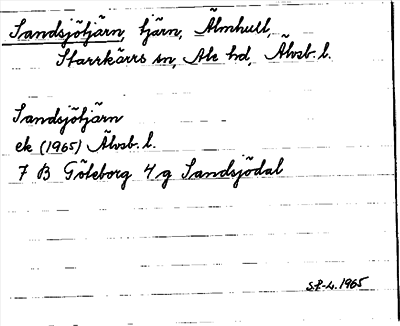 Sandsjötjärn, tjärn, Älmhult,
Starrkärrs sn, Ale hd, Älvsb. l.
Sandsjötjärn
ek (1965) Älvsb. l.
7 B Göteborg 4 g Sandsjödal
1965